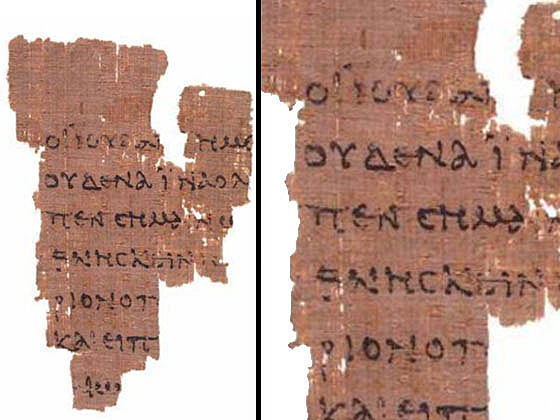 ΟΙ ΪΟΥΔΑΙ ΗΜΕ
ΟΥΔΕΝΑ ΪΝΑ Ο Λ
ΠΕΝ ϹΗΜΑΙΝΩ
ΘΝΗϹΚΕΙΝ
ΡΙΟΝ Ο Π
ΚΑΙ ΕΙΠ
ΟΙ ΪΟΥΔΑΙ
ΟΥΔΕΝΑ ΪΝΑ
ΠΕΝ ϹΗΜΑΙ
ΘΝΗϹΚΕΙΝ
ΡΙΟΝ Ο Π
ΚΑΙ ΕΙΠ